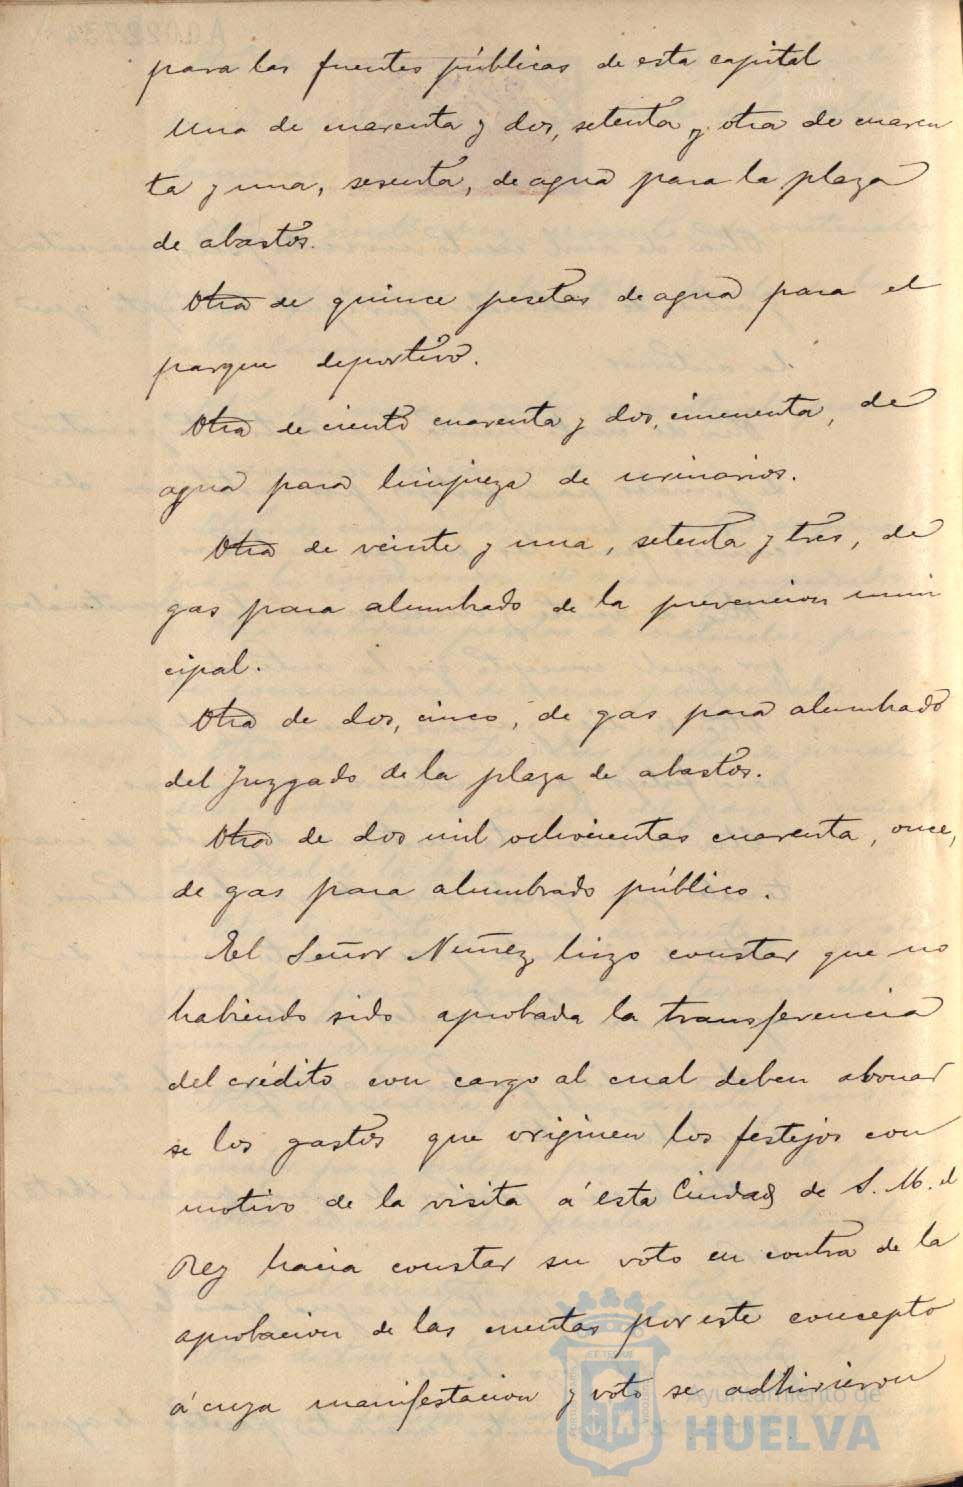 para las fuentes públicas de esta capital
Una de cuarenta y dos, setenta y otra de cuaren
ta y una, sesenta, de agua para la plaza
de abastos.
Otra de quince pesetas de agua para el
parque deportivo.
Otra de ciento cuarenta y dos, cincuenta, de
agua para limpieza de urinarios.
Otra de veinte y una, setenta y tres, de
gas para alumbrado de la prevencion muni
cipal.
Otra de dos, cinco, de gas para alumbrado
del Juzgado de la plaza de abastos.
Otra de dos mil ochocientas cuarenta, once,
de gas para alumbrado público.
El Señor Nuñez hizo constar que no
habiendo sido aprobada la transferencia
del crédito con cargo al cual deben abonar
se los gastos que originen los festejos con
motivo de la visita á esta Ciudad de S. M. el
Rey hacia constar su voto en contra de la
aprobacion de las cuentas por este concepto
á cuya manifestacion y voto se adhirieron
Ayuntamiento de
HUELVA